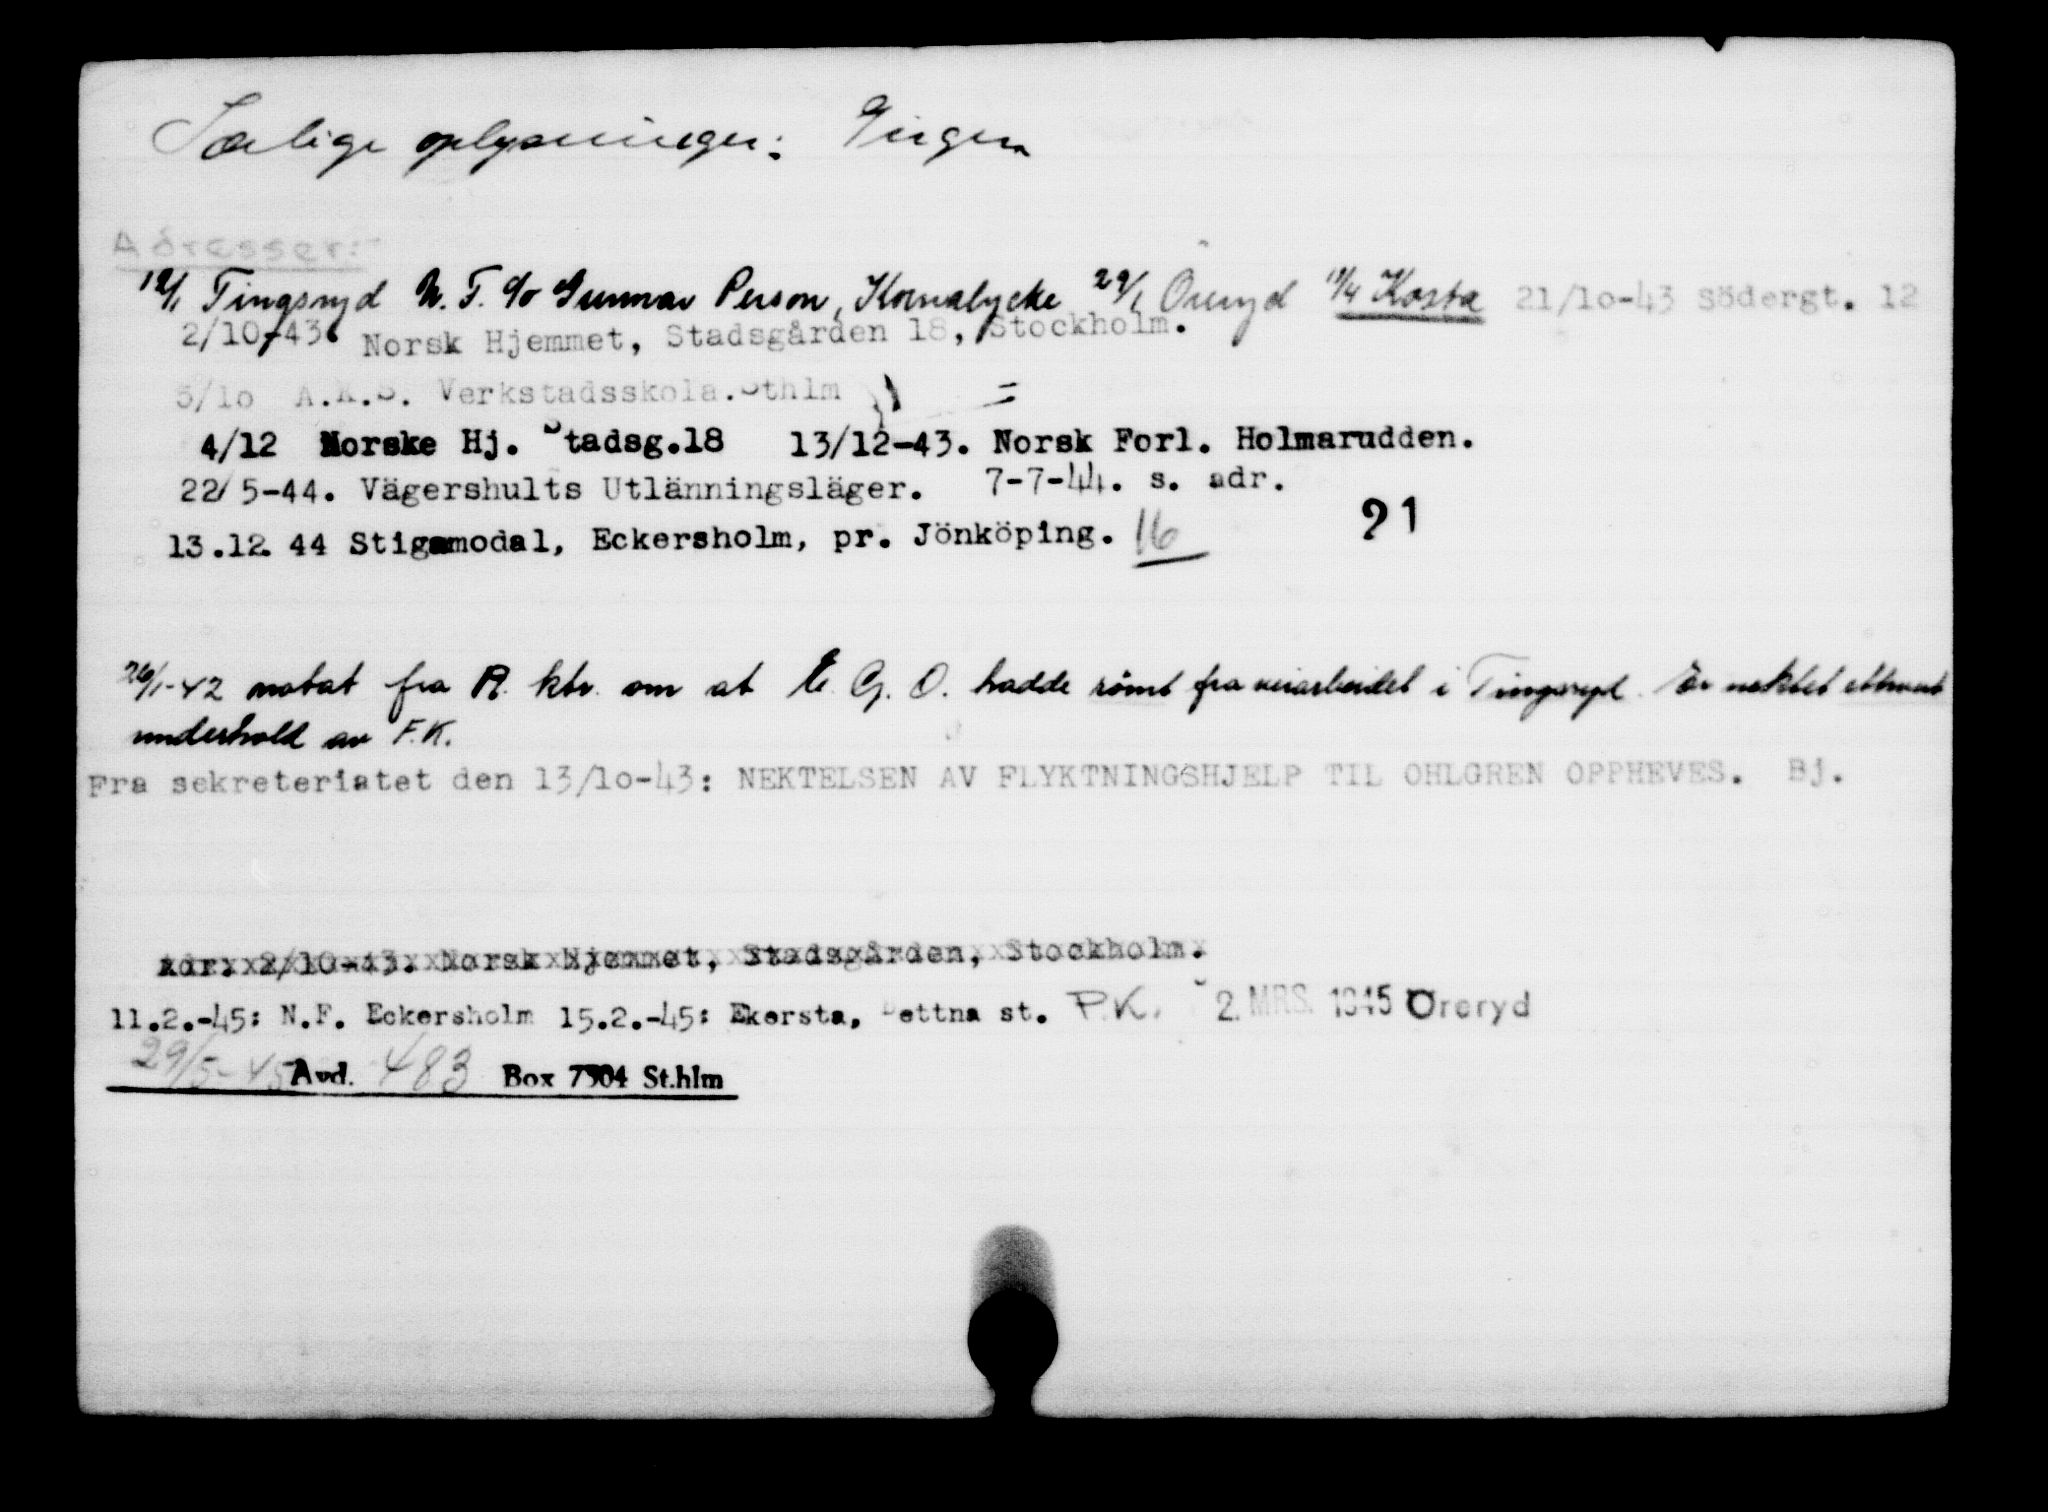 Særlige oplysninger: Ingen
Adresser:
19/1 Tingsryd N. F. c/o Gunnar Person, Kornalycke 29/1 Öreryd 11/4 Kosta 21/10-43 Södergt. 12
2/10-43. Norsk Hjemmet, Stadsgården 18, Stockholm.
5/10 A.K.S. Verkstadsskola. Sthlm
4/12 Norske Hj. Stadsg.18 13/12-43. Norsk Forl. Holmarudden.
22/5-44. Vägershults Utlänningsläger. 7-7-44. s. adr.
13.12. 44 Stigamodal, Eckersholm, pr. Jönköping. 16 21
26/1-42 notat fra R. ktr. om at E. G. O. hadde römt fra veiarbeidet i Tingsryd. Er nektet ethvert
underhold av F.K.
Fra sekreteriatet den 13/10-43: NEKTELSEN AV FLYKTNINGSHJELP TIL OHLGREN OPPHEVES. Bj.
Adr. 2/10-43. Norsk Hjemmet, Stadsgården, Stockholm.
11.2.-45: N.F. Eckersholm 15.2.-45: Ekersta, Bettna st. P.K. 2. MRS. 1945 Öreryd
29/5-45 Avd. 483 Box 7304 St.hlm